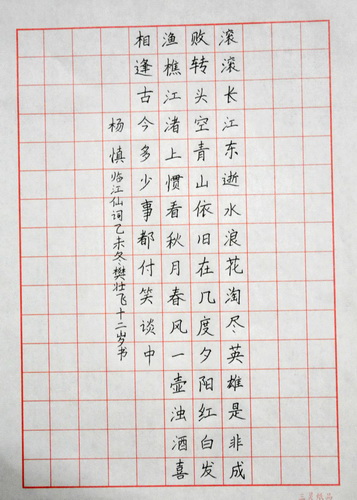 滚滚长江东逝水浪花淘尽英雄是非成
败转头空青山依旧在几度夕阳红白发
渔樵江渚上惯看秋月春风一壶浊酒喜
相逢古今多少事都付笑谈中
杨慎临江仙词乙未冬樊壮飞十二岁书